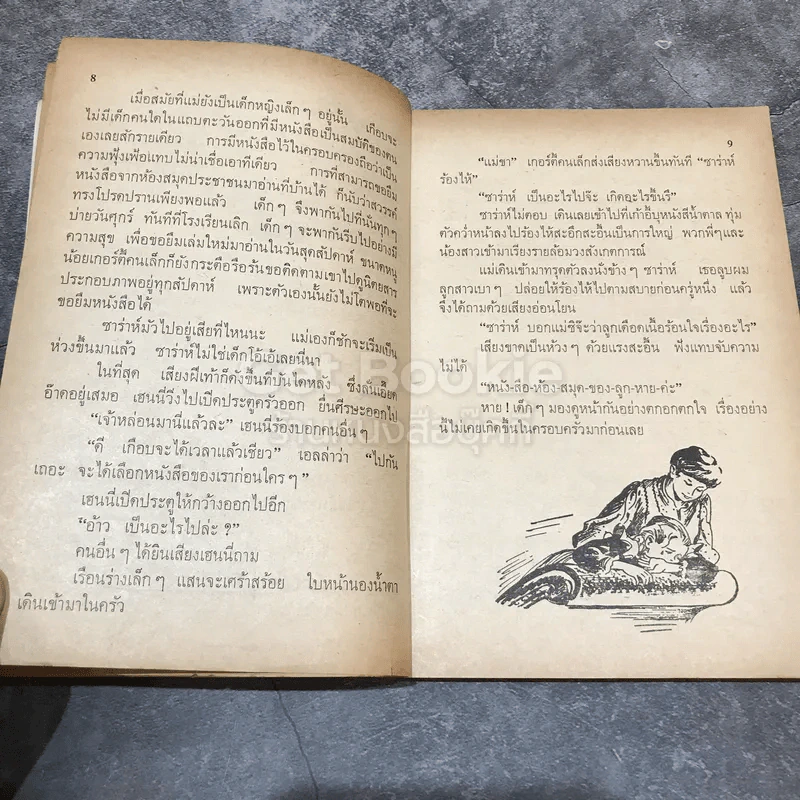 8
เมื่อสมัยที่แม่ยังเป็นเด็กหญิงเล็กๆ อยู่นั้น เกือบจะ
ไม่มีเด็กคนใดในแถบตะวันออกที่มีหนังสือเป็นสมบัติของตน
เองเลยสักรายเดียว การมีหนังสือไว้ในครอบครองถือว่าเป็น
ความฟุ้งเฟ้อแทบไม่น่าเชื่อเอาทีเดียว การที่สามารถขอยืม
หนังสือจากห้องสมุดประชาชนมาอ่านที่บ้านได้ ก็นับว่าสวรรค์
ทรงโปรดปรานเพียงพอแล้ว เด็กๆ จึงพากันไปที่นั่นทุกๆ
บ่ายวันศุกร์ ทันทีที่โรงเรียนเลิก เด็กๆ จะพากันรีบไปอย่างมี
ความสุข เพื่อขอยืมเล่มใหม่มาอ่านในวันสุดสัปดาห์ ขนาดหนู
น้อยเกอร์ตี้คนเล็กก็ยังกระตือรือร้นขอติดตามเขาไปดูนิตยสาร
ประกอบภาพอยู่ทุกสัปดาห์ เพราะตัวเองนั้นยังไม่โตพอที่จะ
ขอยืมหนังสือได้
ซาร่าห์มัวไปอยู่เสียที่ไหนนะ แม่เองก็ชักจะเริ่มเป็น
ห่วงขึ้นมาแล้ว ซาร่าห์ไม่ใช่เด็กโอ้เอ้เลยนี่นา
ในที่สุด เสียงฝีเท้าก็ดังขึ้นที่บันไดหลัง ซึ่งลั่นเอี๊ยด
อ๊าดอยู่เสมอ เฮนนี่วิ่งไปเปิดประตูครัวออก ยื่นศีรษะออกไป
“เจ้าหล่อนมานี่แล้วละ” เฮนนี่ร้องบอกคนอื่นๆ
“ดี เกือบจะได้เวลาแล้วเชียว” เอลล่าว่า “ไปกัน
เถอะ จะได้เลือกหนังสือของเราก่อนใครๆ”
เฮนนี่เปิดประตูให้กว้างออกไปอีก
“อ้าว เป็นอะไรไปล่ะ ?”
คนอื่นๆ ได้ยินเสียงเฮนนี่ถาม
เรือนร่างเล็กๆ แสนจะเศร้าสร้อย ใบหน้านองน้ำตา
เดินเข้ามาในครัว
9
“แม่ขา” เกอร์ตี้คนเล็กส่งเสียงหวานขึ้นทันที “ซาร่าห์
ร้องไห้”
“ซาร่าห์ เป็นอะไรไปจ๊ะ เกิดอะไรขึ้นรึ”
ซาร่าห์ไม่ตอบ เดินเลยเข้าไปที่เก้าอี้บุหนังสีน้ำตาล ทุ่ม
ตัวคว่ำหน้าลงไปร้องไห้สะอึกสะอื้นเป็นการใหญ่ พวกพี่ๆและ
น้องสาวเข้ามาเรียงรายล้อมวงสังเกตการณ์
แม่เดินเข้ามาทรุดตัวลงนั่งข้างๆ ซาร่าห์ เธอลูบผม
ลูกสาวเบาๆ ปล่อยให้ร้องไห้ไปตามสบายก่อนครู่หนึ่ง แล้ว
จึงได้ถามด้วยเสียงอ่อนโยน
“ซาร่าห์ บอกแม่ซิจ๊ะว่าลูกเดือดเนื้อร้อนใจเรื่องอะไร”
เสียงขาดเป็นห้วงๆ ด้วยแรงสะอื้น ฟังแทบจับความ
ไม่ได้
“หนัง-สือ-ห้อง-สมุด-ของ-ลูก-หาย-ค่ะ”
หาย ! เด็กๆ มองดูหน้ากันอย่างตกอกตกใจ เรื่องอย่าง
นี้ไม่เคยเกิดขึ้นในครอบครัวมาก่อนเลย
Get Bookie
ร้านหนังสือบุ๊คกี้